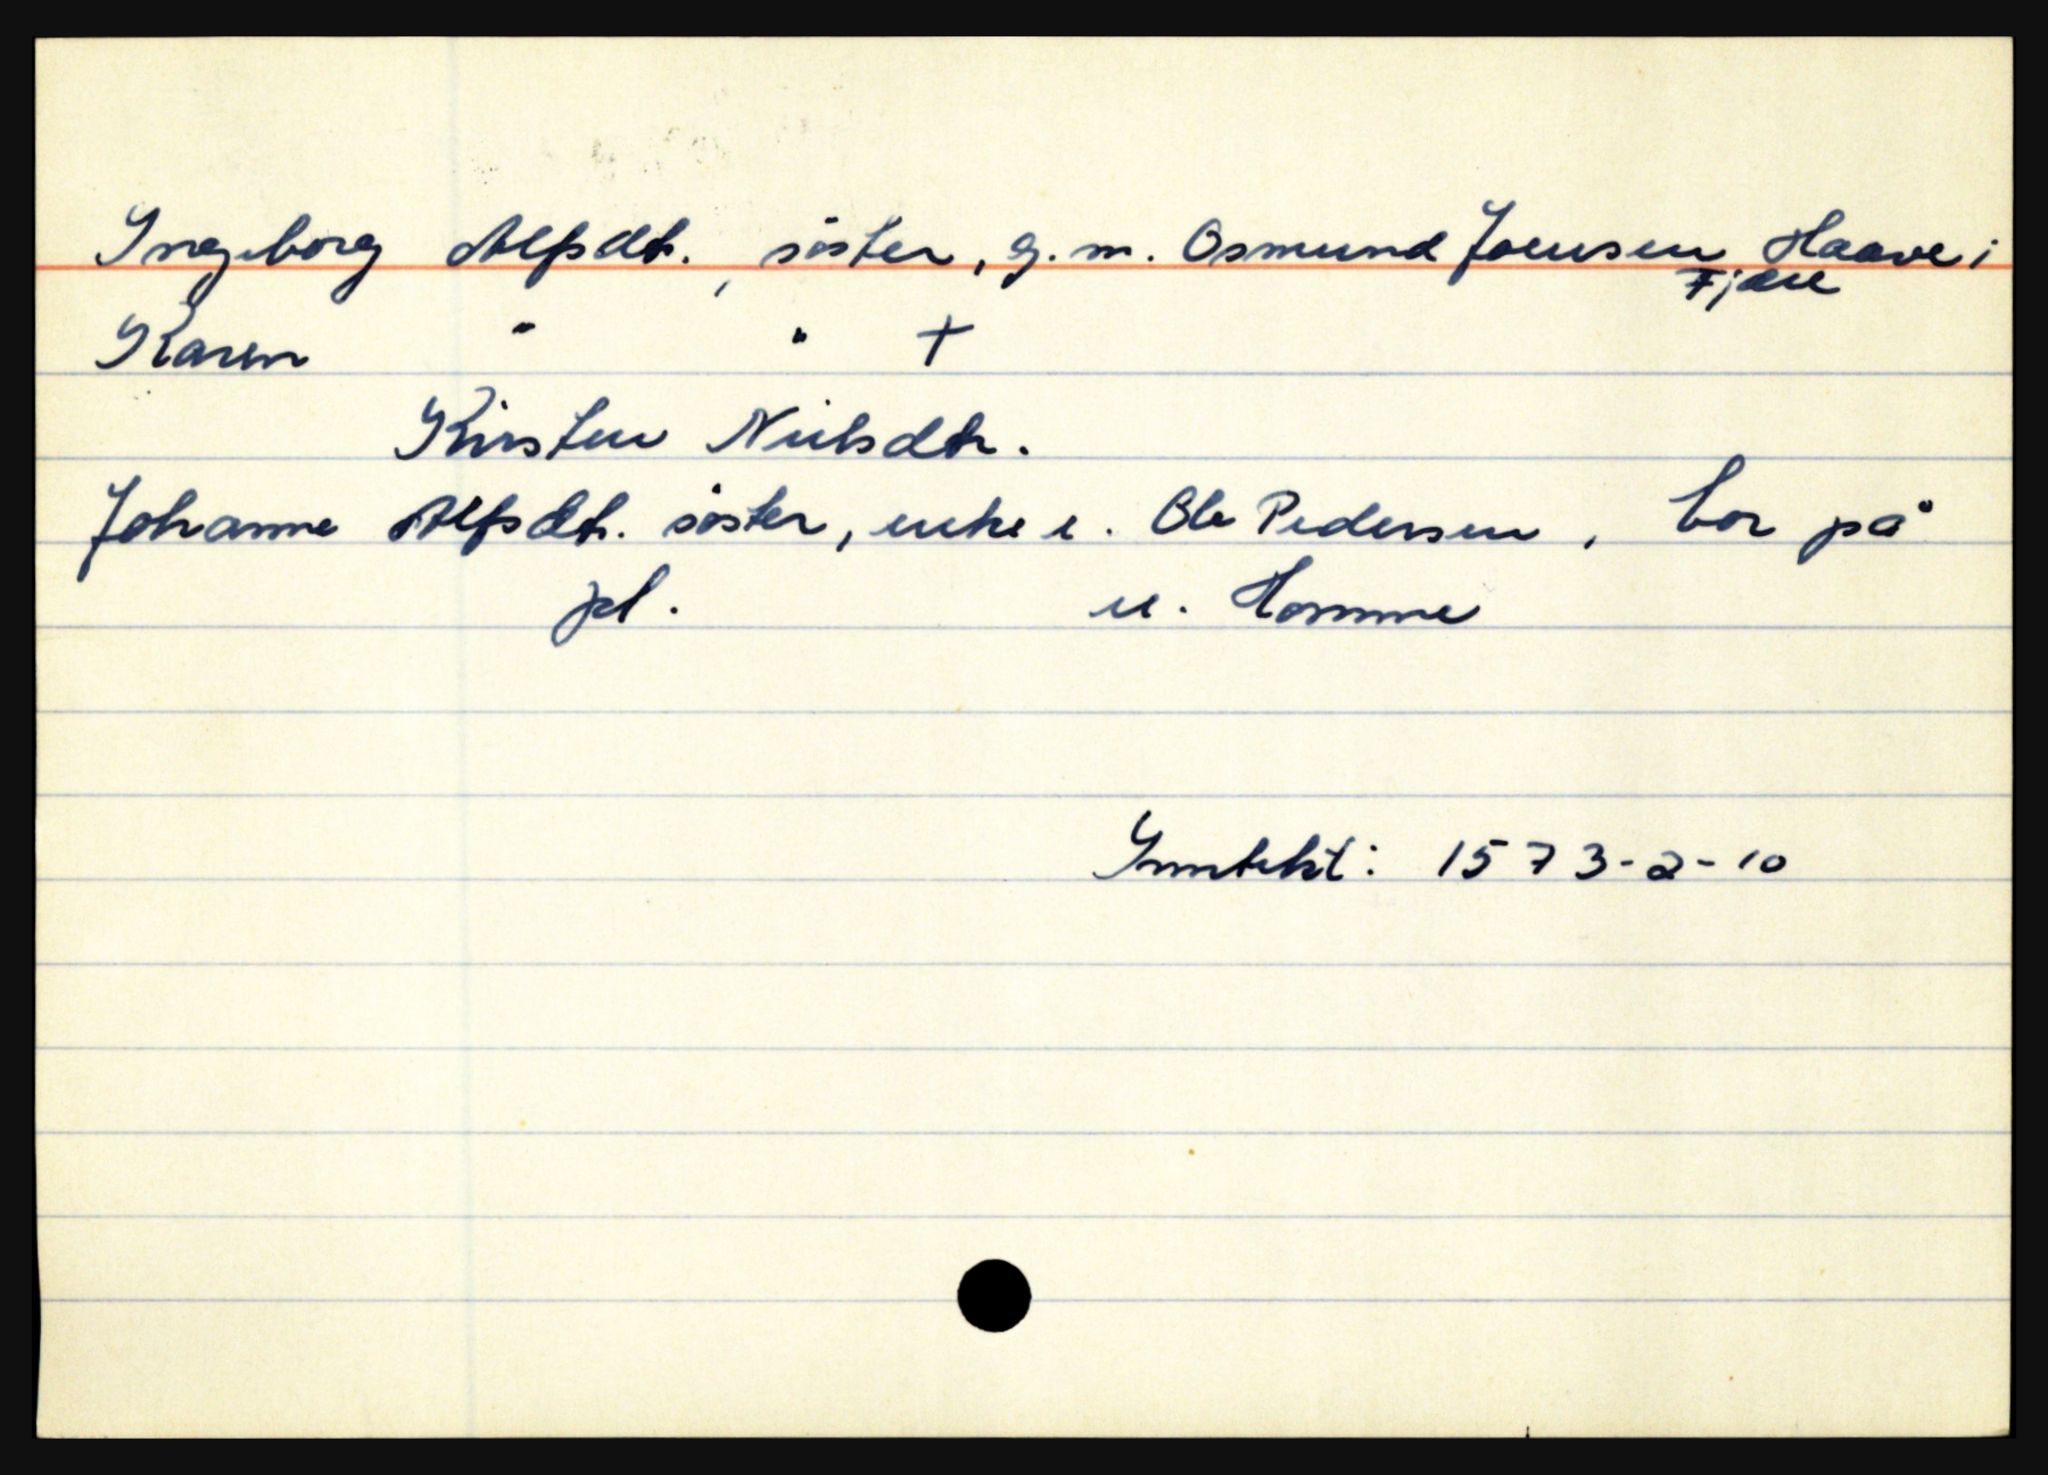 Ingeborg Alfsdtr., søster, g.m. Osmund Joensen Haave i
Fjære
Karen " " +
Kirsten Nielsdtr.
Johanne Alfsdtr. søster, enke e. Ole Pedersen, bor på
pl. u. Homme
Inntekt: 1573-2-10